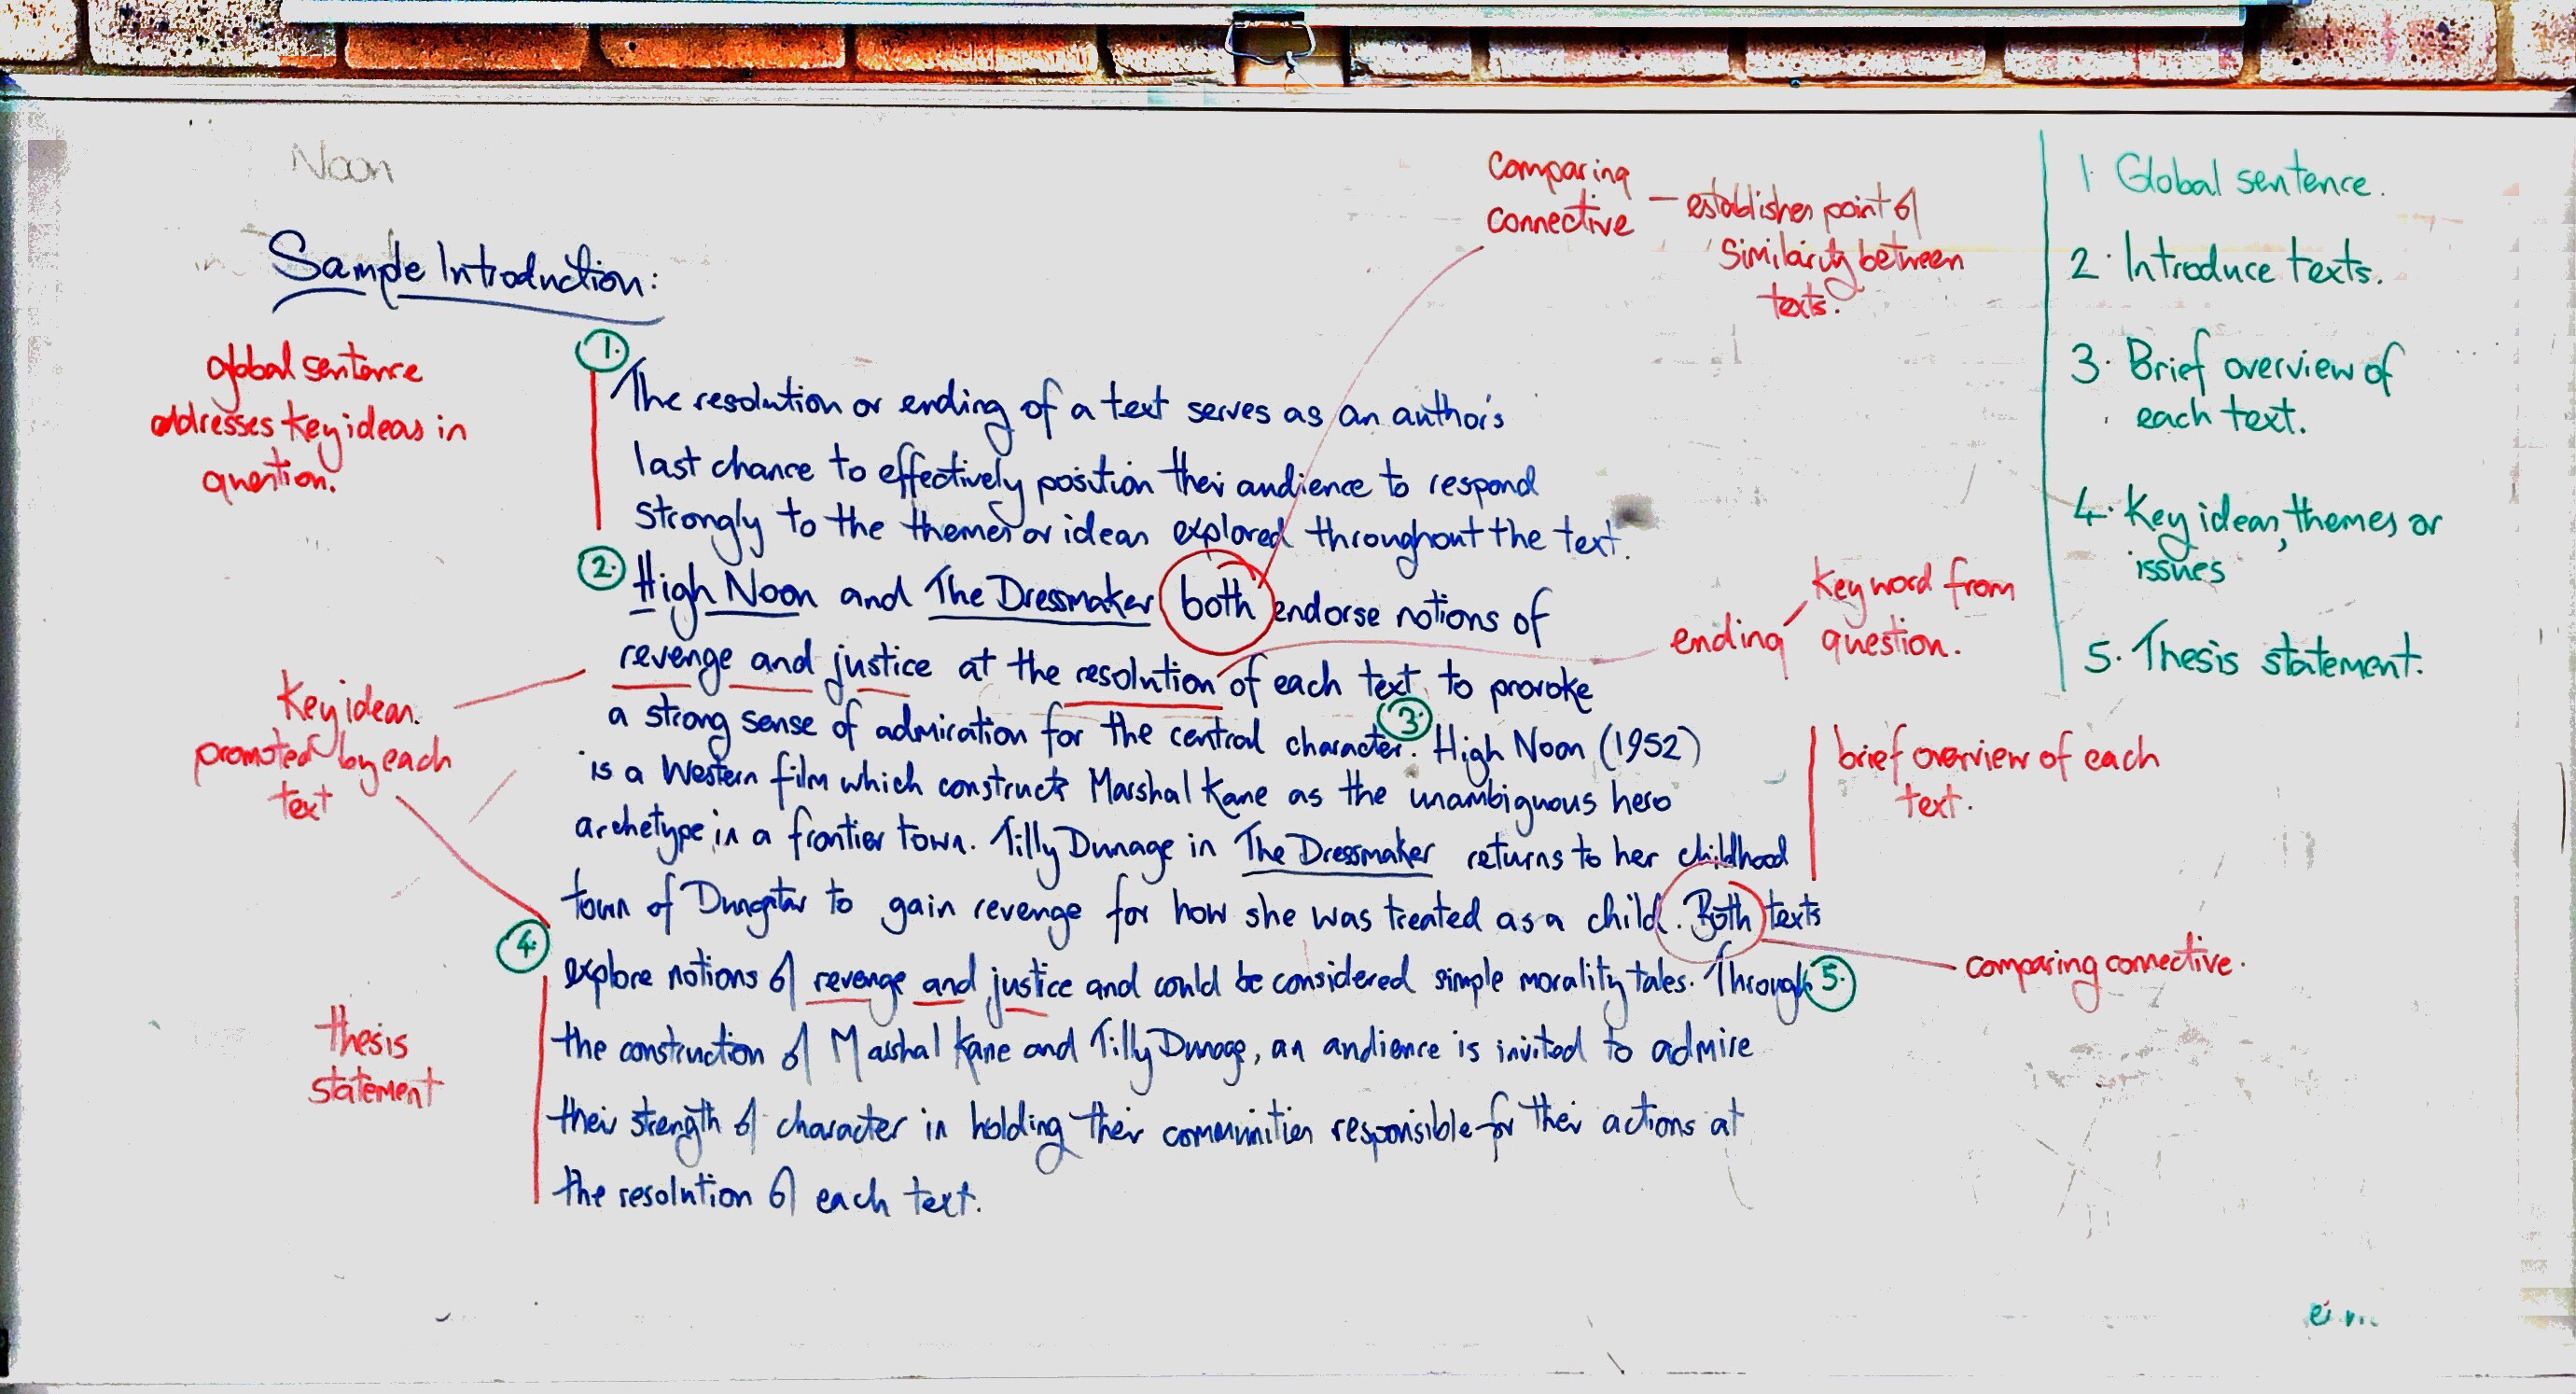 Noon
Sample Introduction:
global sentence
addresses key ideas in
question.
1.
The resolution or ending of a text serves as an author's
last chance to effectively position their audience to respond
strongly to the themes or ideas explored throughout the text.
2.
High Noon and The Dressmaker both endorse notions of
revenge and justice at the resolution of each text, to provoke
a strong sense of admiration for the central character. 3. High Noon (1952)
is a Western film which constructs Marshal Kane as the unambiguous hero
archetype in a frontier town. Tilly Dunage in The Dressmaker returns to her childhood
town of Dungatar to gain revenge for how she was treated as a child. Both texts
4.
explore notions of revenge and justice and could be considered simple morality tales. Through 5.
the construction of Marshal Kane and Tilly Dunage, an audience is invited to admire
their strength of character in holding their communities responsible for their actions at
the resolution of each text.
Key ideas.
promoted by each
text
thesis
statement
Comparing
connective
– establishes point of
similarity between
texts.
ending
Key word from
question.
brief overview of each
text.
comparing connective.
1 Global sentence.
2. Introduce texts.
3. Brief overview of
each text.
4. Key ideas, themes or
issues
5. Thesis statement.